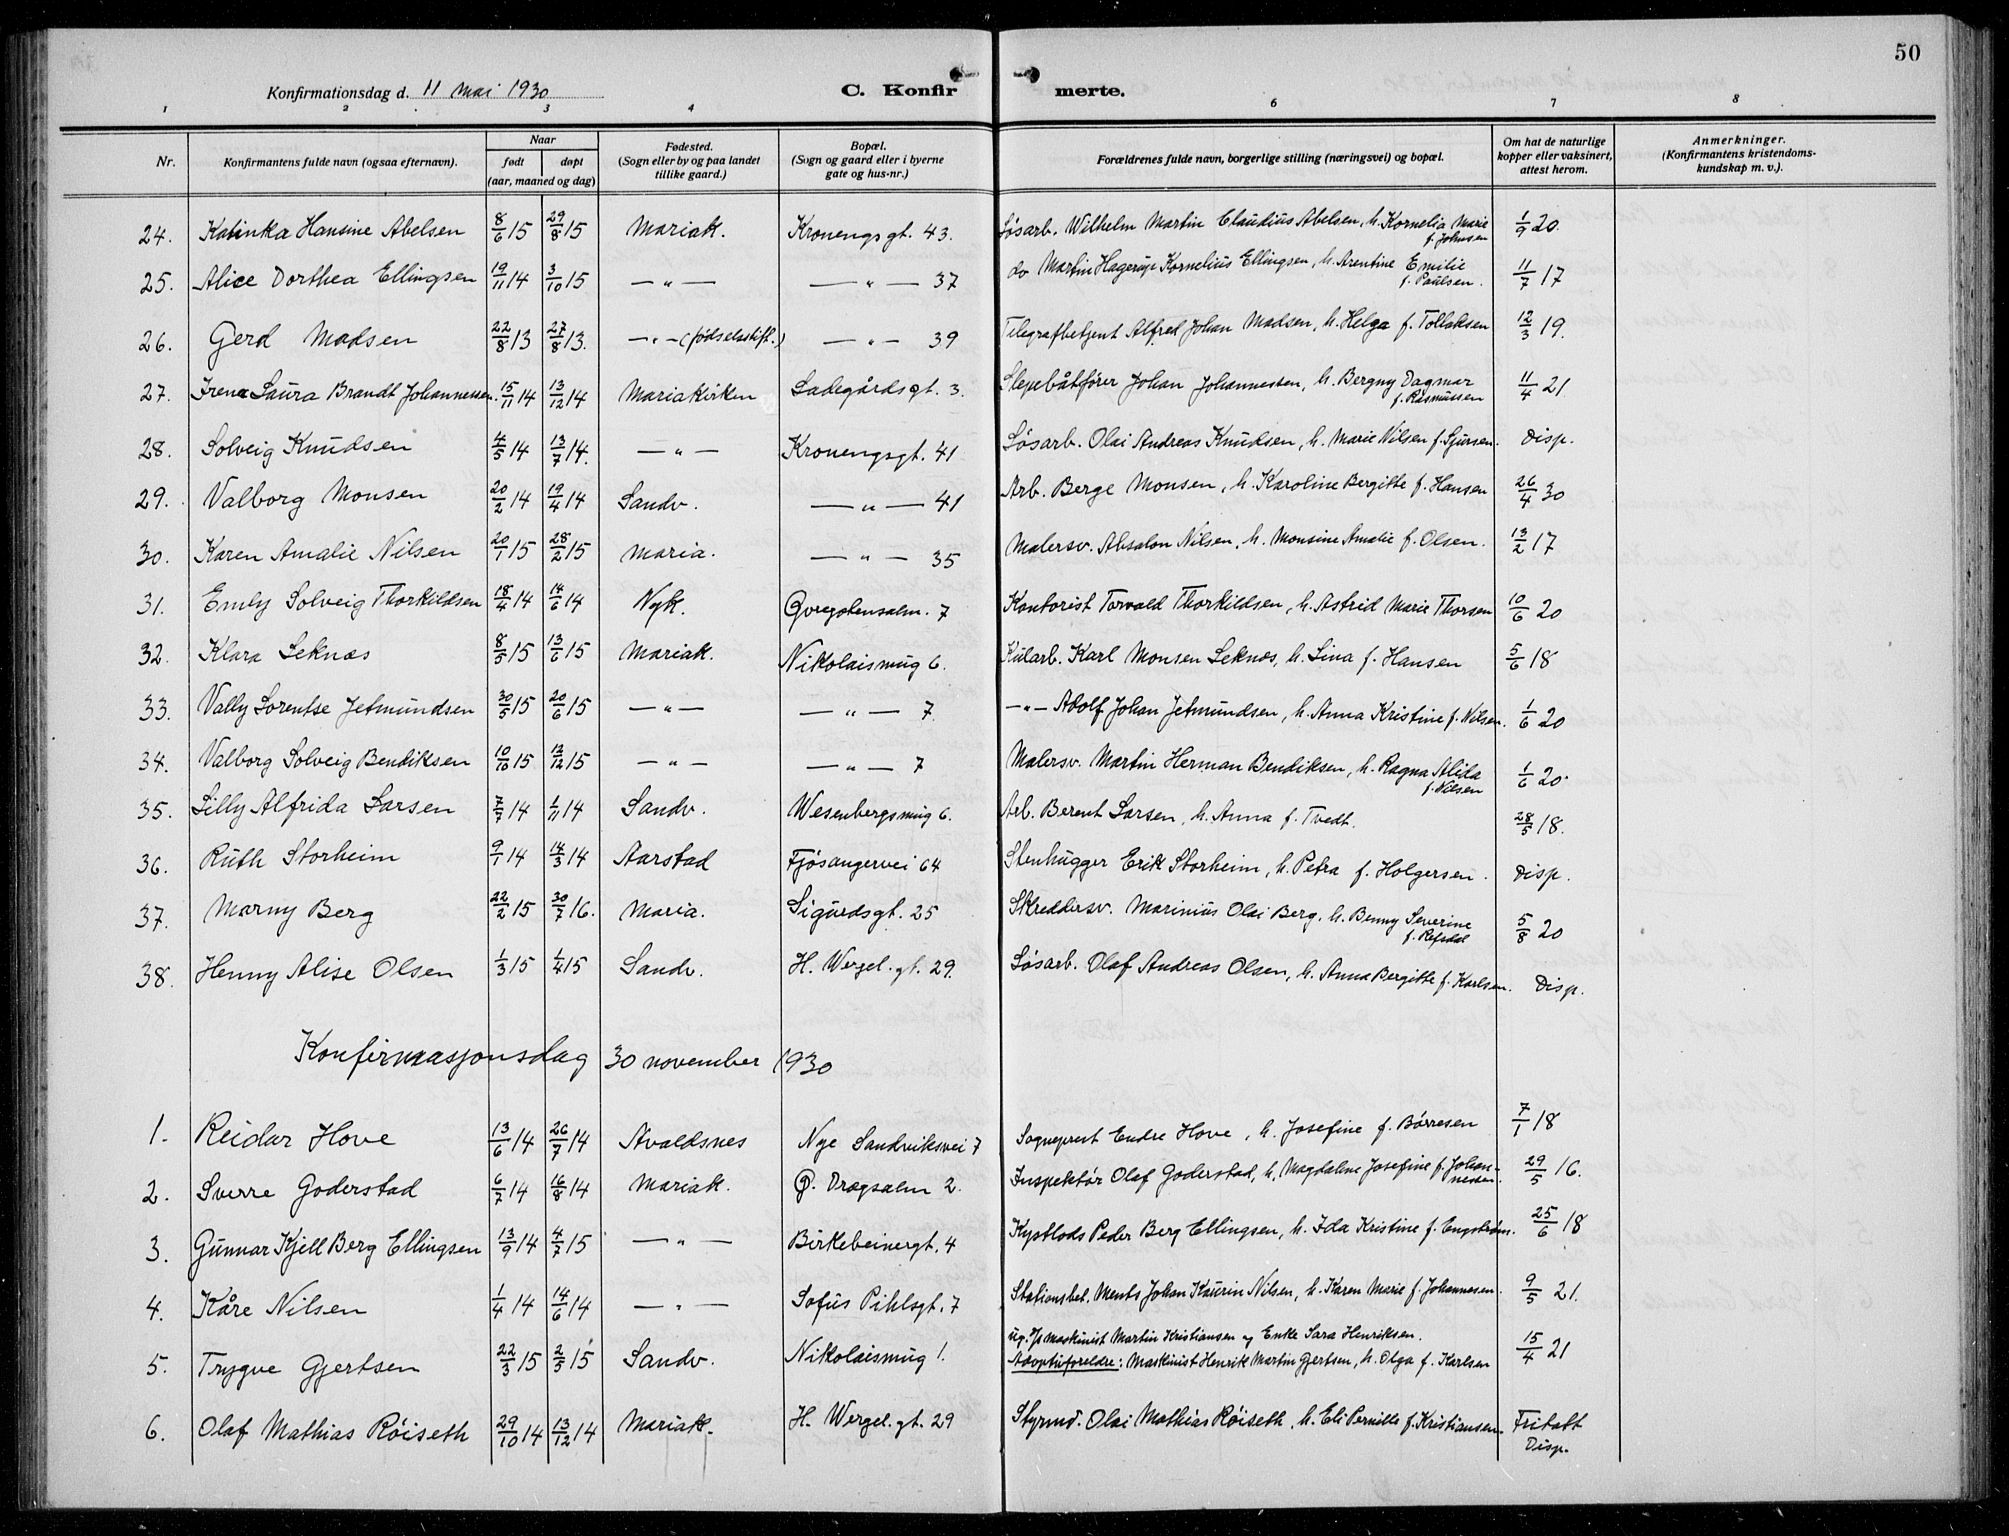 50
Konfirmationsdag d. 11 mai 1930 C. Konfir merte.
1 2 3 4 6 7 8
Nr. Konfirmantens fulde navn (ogsaa efternavn). Naar født døpt (aar, maaned og dag) Fødested. (Sogn eller by og paa landet tillike gaard.) Bopæl. (Sogn og gaard eller i byerne gate og hus-nr.) Forældrenes fulde navn, borgerlige stilling (næringsvei) og bopæl. Om hat de naturlige kopper eller vaksinert, attest herom. Anmerkninger. (Konfirmantens kristendoms-kundskap m. v.).
24. Katinka Hansine Abelsen 8/6 15 29/8 15 Mariak. Kronengsgt. 43. Søsarb. Wilhelm Martin Claudius Abelsen, h. Kornelia Marie f. Johnsen 1/9 20.
25. Alice Dorthea Ellingsen 19/11 14 3/10 15 —"— —"— 37 do Martin Hagerup Kornelius Ellingsen, h. Arentine Emilie f. Paulsen. 11/7 17
26. Gerd Madsen 22/8 13 27/8 13. —"— (fødselsstift.) —"— 39 Telegrafbetjent Alfred Johan Madsen, h. Helga f. Tollaksen 12/3 19.
27. Irene Laura Brandt Johannessen. 15/11 14 13/12 14 Mariakirken Ladegårdsgt. 3. Slepebåtfører Johan Johannessen, h. Bergny Dagmar f. Rasmussen 11/4 21
28. Solveig Knudsen 4/5 14 13/7 14. —"— Kronengsgt. 41 Søsarb. Olai Andreas Knudsen, h. Marie Nilsen f. Sjursen. Disp.
29. Valborg Monsen 20/2 14 19/4 14 Sandv. —"— 41 Arb. Berge Monsen, h. Karoline Bergitte f. Hansen 26/4 30
30. Karen Amalie Nilsen 20/1 15 28/2 15 Maria. —"— 35 Malersv. Absalon Nilsen, h. Monsine Amalie f. Olsen. 13/2 17
31. Emly Solveig Thorkildsen 18/4 14 14/6 14 Nyk. 7 Kontorist Torvald Thorkildsen, h. Astrid Marie Thorsen 10/6 20
32. Klara Leknes 8/5 15 13/6 15 Mariak. Nikolaismug 6. Kularb. Karl Monsen Leknes, h. Lina f. Hansen 5/6 18
33. Vally Lorentse Jetmundsen 30/5 15 20/6 15 —"— —"— 7. —"— Adolf Johan Jetmundsen, h. Anna Kristine f. Nilsen. 1/6 20
34. Valborg Solveig Bendiksen 10/10 15 12/12 15 —"— —"— 7 Malersv. Martin Herman Bendiksen, h. Ragna Alida f. Nilsen 1/6 20.
35. Lilly Alfrida Larsen 7/7 14 1/11 14 Sandv. Wesenbergsmug 6. Arb. Berent Larsen, h. Anna f. Tvedt. 28/5 18.
36. Ruth Storheim 9/1 14 14/3 14 Aarstad Fjøsangervei 64 Stenhugger Erik Storheim, h. Petra f. Holgersen. Disp.
37. Marny Berg 22/2 15 30/7 16. Maria. Sigurdsgt. 25 Skreddersv. Marinius Olai Berg, h. Benny Severine f. Refsdal 5/8 20
38. Henny Alise Olsen 1/3 15 1/4 15 Sandv. H. Wergel. gt. 29. Søsarb. Olaf Andreas Olsen, h. Anna Bergitte f. Karlsen. Disp.
Konfirmasjonsdag 30 november 1930
1. Reidar Hove 13/6 14 26/7 14 Avaldsnes Nye Sandviksvei 7 Sogneprest Endre Hove, h. Josefine f. Børresen 7/1 18
2. Sverre Goderstad 6/7 14 16/8 14 Mariak. Ø. Dregsalm 2. Inspektør Olaf Goderstad, h. Magdalene Josefine f. Johannessen. 29/5 16.
3. Gunnar Kjell Berg Ellingsen 13/9 14 4/7 15 —"— Birkebeinergt. 4 Kystlods Peder Berg Ellingsen, h. Ida Kristine f. Engstrøm. 25/6 18
4. Kåre Nilsen 1/4 14 14/6 14 —"— Sofus Pihlsgt. 7 Stationsbet. Ments Johan Kaurin Nilsen, h. Karen Marie f. Johannesen. 9/5 21.
5. Trygve Gjertsen 22/3 15 2/5 15 Sandv. Nikolaismug 1. ug. f/s maskinist Martin Kristiansen og Enke Sara Henriksen. Adoptivforeldre: Maskinist Henrik Martin Gjertsen, h. Olga f. Karlsen 15/4 21
6. Olaf Mathias Røiseth 29/10 14 13/12 14 Mariak. H. Wergel. gt. 29 Styrmd. Olai Mathias Røiseth, h. Eli Pernille f. Kristiansen. Fritatt Disp.